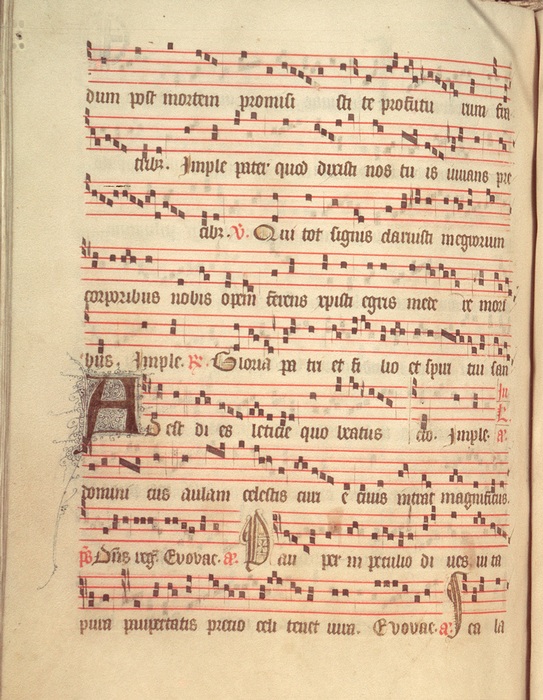 dum post mortem promisi sti te profutu rum fra
tribꝫ. Imple pater quod dixisti nos tu is iuuans pre
cibꝫ. V. Qui tot signis claruisti in egrorum
corporibus nobis opem ferens xpisti egris mede re mori
bus. Imple. R. Gloria pa tri et fi lio et spiri tui san
Ad est di es leticie quo beatus cto. Imple. a.
domini cus aulam celestis curi e ciuis intrat magnificus.
ps Dns reg. Evovae. a. Pau per in peculio di ues uita
pura paupertatis precio celi tenet iura. Evovae. a. Sca la